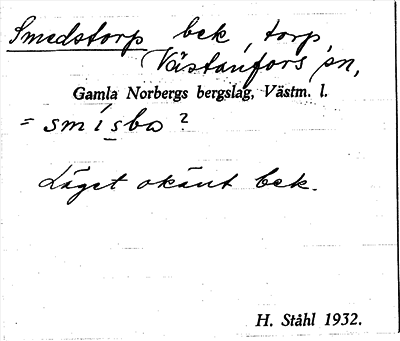 Smedstorp bek, torp,
Västanfors sn,
Gamla Norbergs bergslag, Västm. l.
= smísba?
Läget okänt bek.
H. Ståhl 1932.